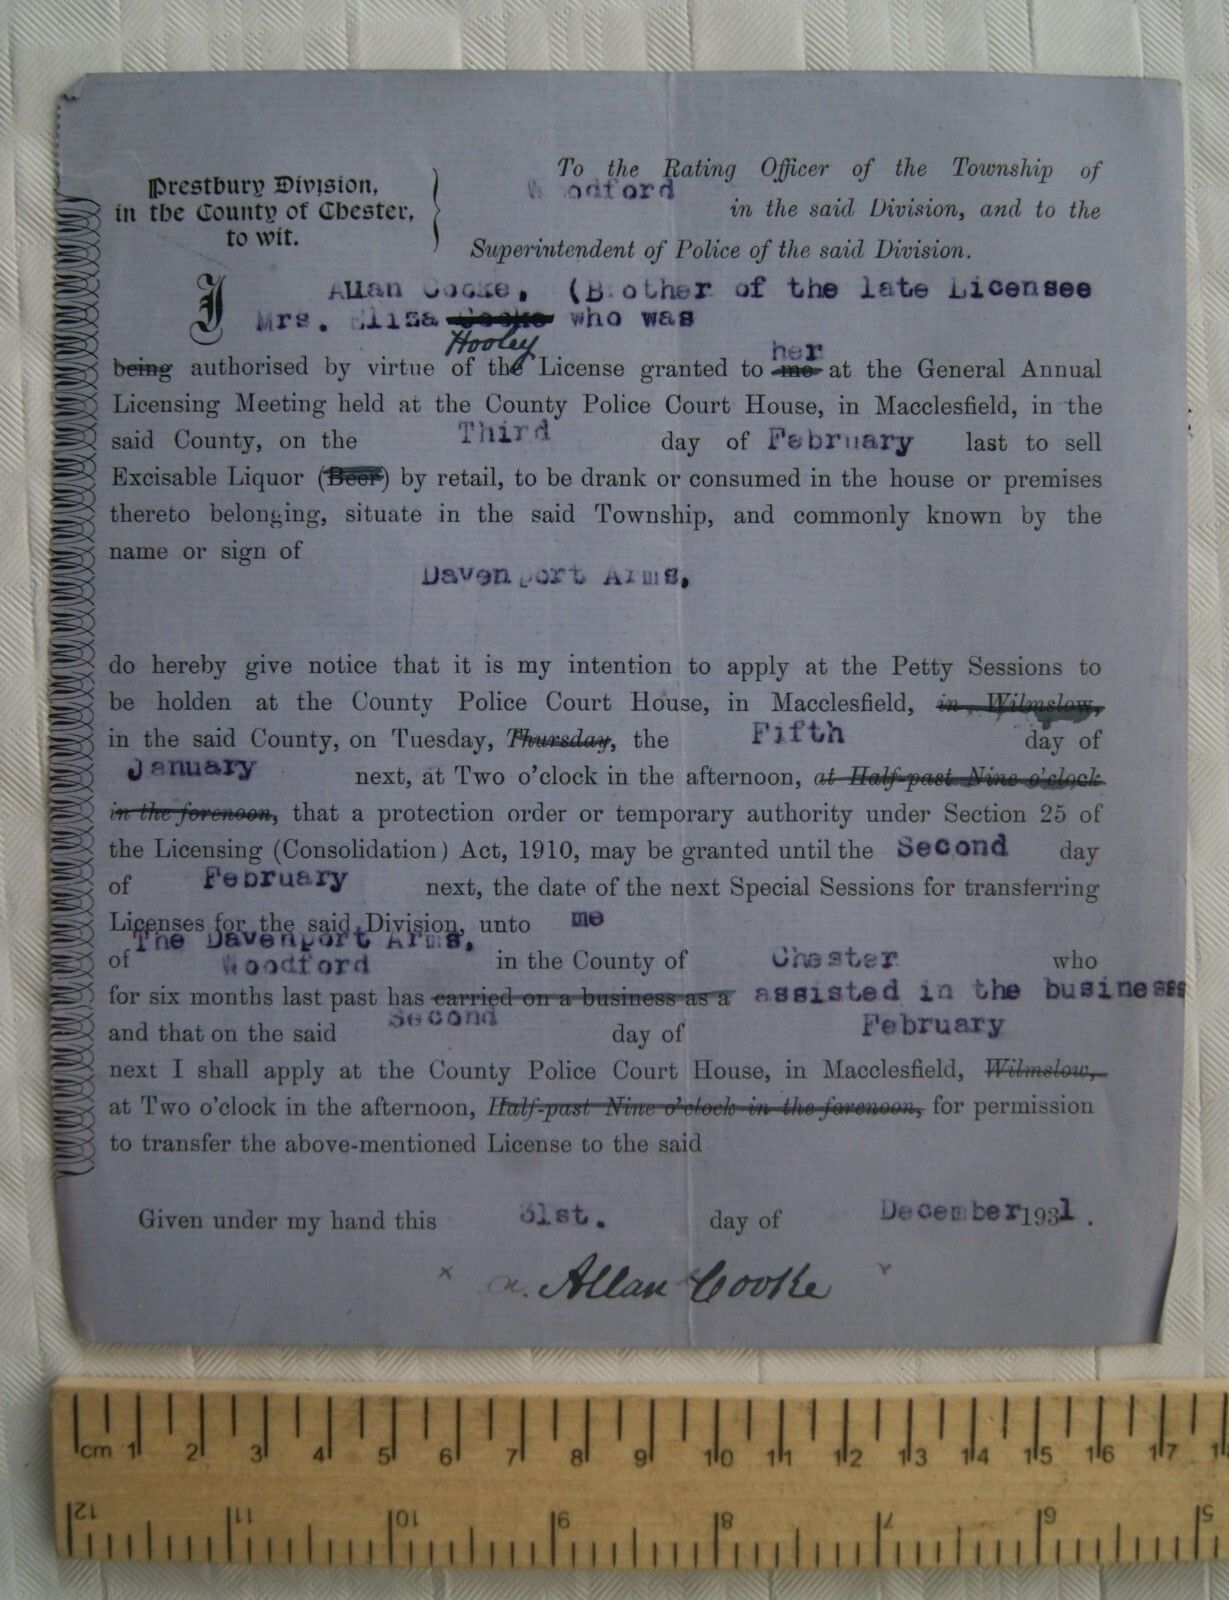 Prestbury Division,
in the County of Chester,
to wit.
To the Rating Officer of the Township of
Woodford
in the said Division, and to the
Superintendent of Police of the said Division.
I Allan Cooke, (Brother of the late Licensee
Mrs. Eliza Cooke who was
Hooley
her
being authorised by virtue of the License granted to me at the General Annual
Licensing Meeting held at the County Police Court House, in Macclesfield, in the
said County, on the Third day of February last to sell
Excisable Liquor (Beer) by retail, to be drank or consumed in the house or premises
thereto belonging, situate in the said Township, and commonly known by the
name or sign of
Davenport Arms.
do hereby give notice that it is my intention to apply at the Petty Sessions to
be holden at the County Police Court House, in Macclesfield, in Wilmslow,
in the said County, on Tuesday, Thursday, the Fifth day of
January next, at Two o'clock in the afternoon, at Half-past Nine o'clock
in the forenoon, that a protection order or temporary authority under Section 25 of
the Licensing (Consolidation) Act, 1910, may be granted until the Second day
of February next, the date of the next Special Sessions for transferring
Licenses for the said Division, unto me
The Davenport Arms,
of Woodford in the County of Chester who
for six months last past has carried on a business as a assisted in the business
and that on the said Second day of February
next I shall apply at the County Police Court House, in Macclesfield, Wilmslow,
at Two o'clock in the afternoon, Half-past Nine o'clock in the forenoon, for permission
to transfer the above-mentioned License to the said
Given under my hand this 31st. day of December 1931.
x Allan Cooke
cm 1 2 3 4 5 6 7 8 9 10 11 12 13 14 15 16 17
12 11 10 9 8 7 6 5